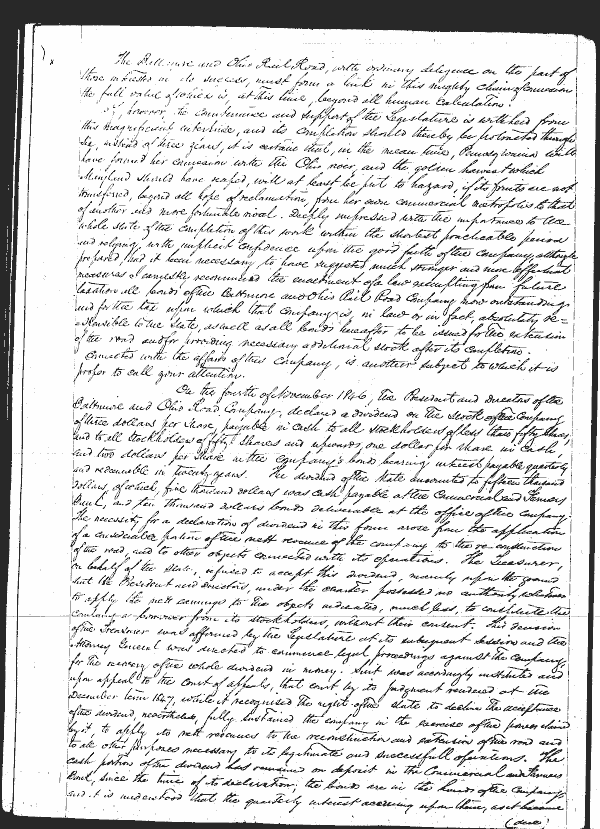 The Baltimore and Ohio Rail Road, with ordinary diligence on the part of
those interested in its success, must form a link in this mighty chain of connexion
the full value of which is, at this time, beyond all human calculation.
If, however, the countenance and support of the Legislature is withheld from
this magnificent enterprise, and its completion should thereby be protracted through
six, instead of three years, it is certain that, in the mean time, Pennsylvania will
have formed her connexion with the Ohio river, and the golden harvest which
Maryland should have reaped, will at least be put to hazard, if its fruits are not
transferred, beyond all hope of reclamation, from her own commercial metropolis to that
of another and more fortunate rival. Deeply impressed with the importance to the
whole state of the completion of this work within the shortest practicable period
and relying, with implicit confidence upon the good faith of the Company, although
prepared, had it been necessary, to have suggested much stronger and more effectual
measures I earnestly recommend the enactment of a law exempting from future
taxation all bonds of the Baltimore and Ohio Rail Road Company now outstanding
and for the tax upon which that Company is, in law or in fact, absolutely re-
sponsible to the State, as well as all bonds hereafter to be issued for the extension
of the road and for providing necessary additional stock after its completion.
Connected with the affairs of this Company, is another subject to which it is
proper to call your attention.
On the fourth of November 1846, the President and Directors of the
Baltimore and Ohio Road Company, declared a dividend on the stock of the Company
of three dollars per share, payable in cash to all stockholders of less than fifty shares,
and to all stockholders of fifty shares and upwards, one dollar per share in cash
and two dollars per share in the Company's bonds bearing interest payable quarterly
and redeemable in twenty years. The dividend of the state amounted to fifteen thousand
dollars, of which, five thousand dollars was cash payable at the Commercial and Farmers
Bank, and ten thousand dollars bonds deliverable at the office of the Company
The necessity for a declaration of dividend in this form arose from the application
of a considerable portion of the nett revenue of the company to the re-construction
of the road, and to other objects connected with its operations. The Treasurer,
on behalf of the State, refused to accept this dividend, mainly upon the ground
that the President and directors, under the charter possessed no authority, whatever
to apply the nett earnings to the objects indicated, much less, to constitute the
company a borrower from its stockholders, without their consent. This decision
of the Treasurer was affirmed by the Legislature at its subsequent session and the
Attorney General was directed to commence legal proceedings against the Company,
for the recovery of the whole dividend in money. Suit was accordingly instituted and
upon appeal to the Court of appeals, that court by its judgment rendered at the
December term 1847, while it recognised the right of the state to decline the acceptance
of the dividend, nevertheless, fully sustained the company in the exercise of the power claimed
by it, to apply its nett revenues to the reconstruction and extension of the road and
to all other purposes necessary to its legitimate and successful operations. The
cash portion of the dividend has remained on deposit in the Commercial and Farmers
Bank, since the time of its declaration; the bonds are in the hands of the Company
and it is understood that the quarterly interest accruing upon them, as it became
(due)